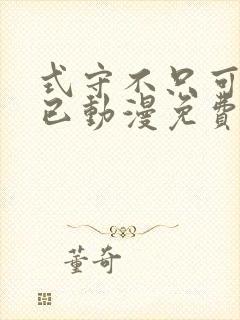 式守不只可
已動漫免費
董奇